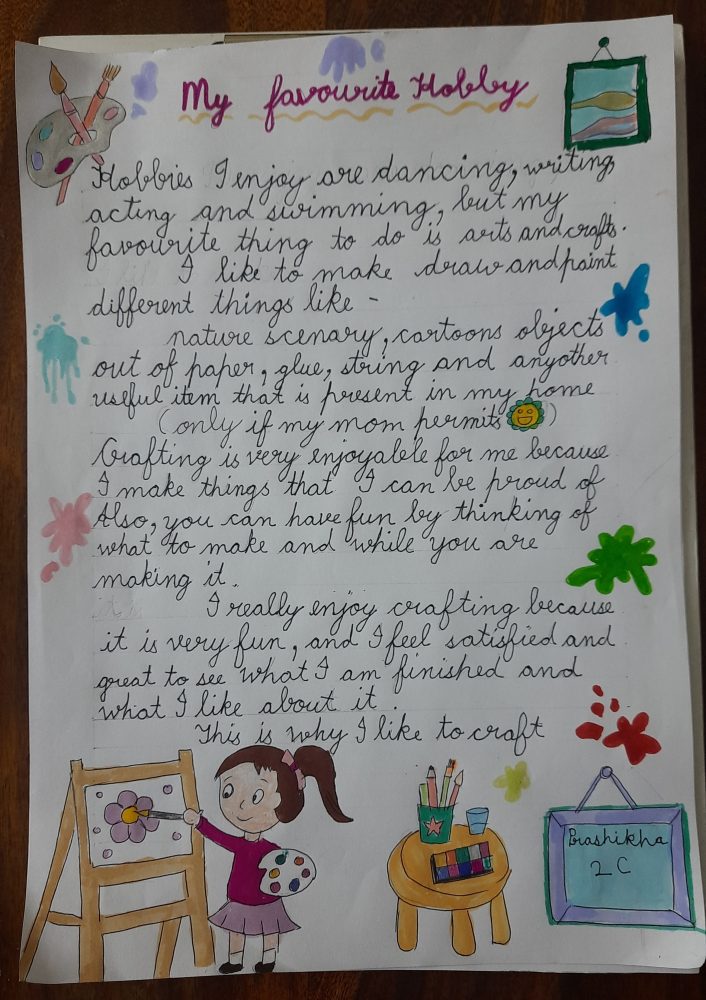 My favourite Hobby
Hobbies I enjoy are dancing, writing,
acting and swimming, but my
favourite thing to do is arts and crafts.
I like to make draw and paint
different things like -
nature scenary, cartoons objects
out of paper, glue, string and anyother
useful item that is present in my home
(only if my mom permits )
Crafting is very enjoyable for me because
I make things that I can be proud of
Also, you can have fun by thinking of
what to make and while you are
making it.
I really enjoy crafting because
it is very fun, and I feel satisfied and
great to see what I am finished and
what I like about it.
This is why I like to craft
Prashikha
2C